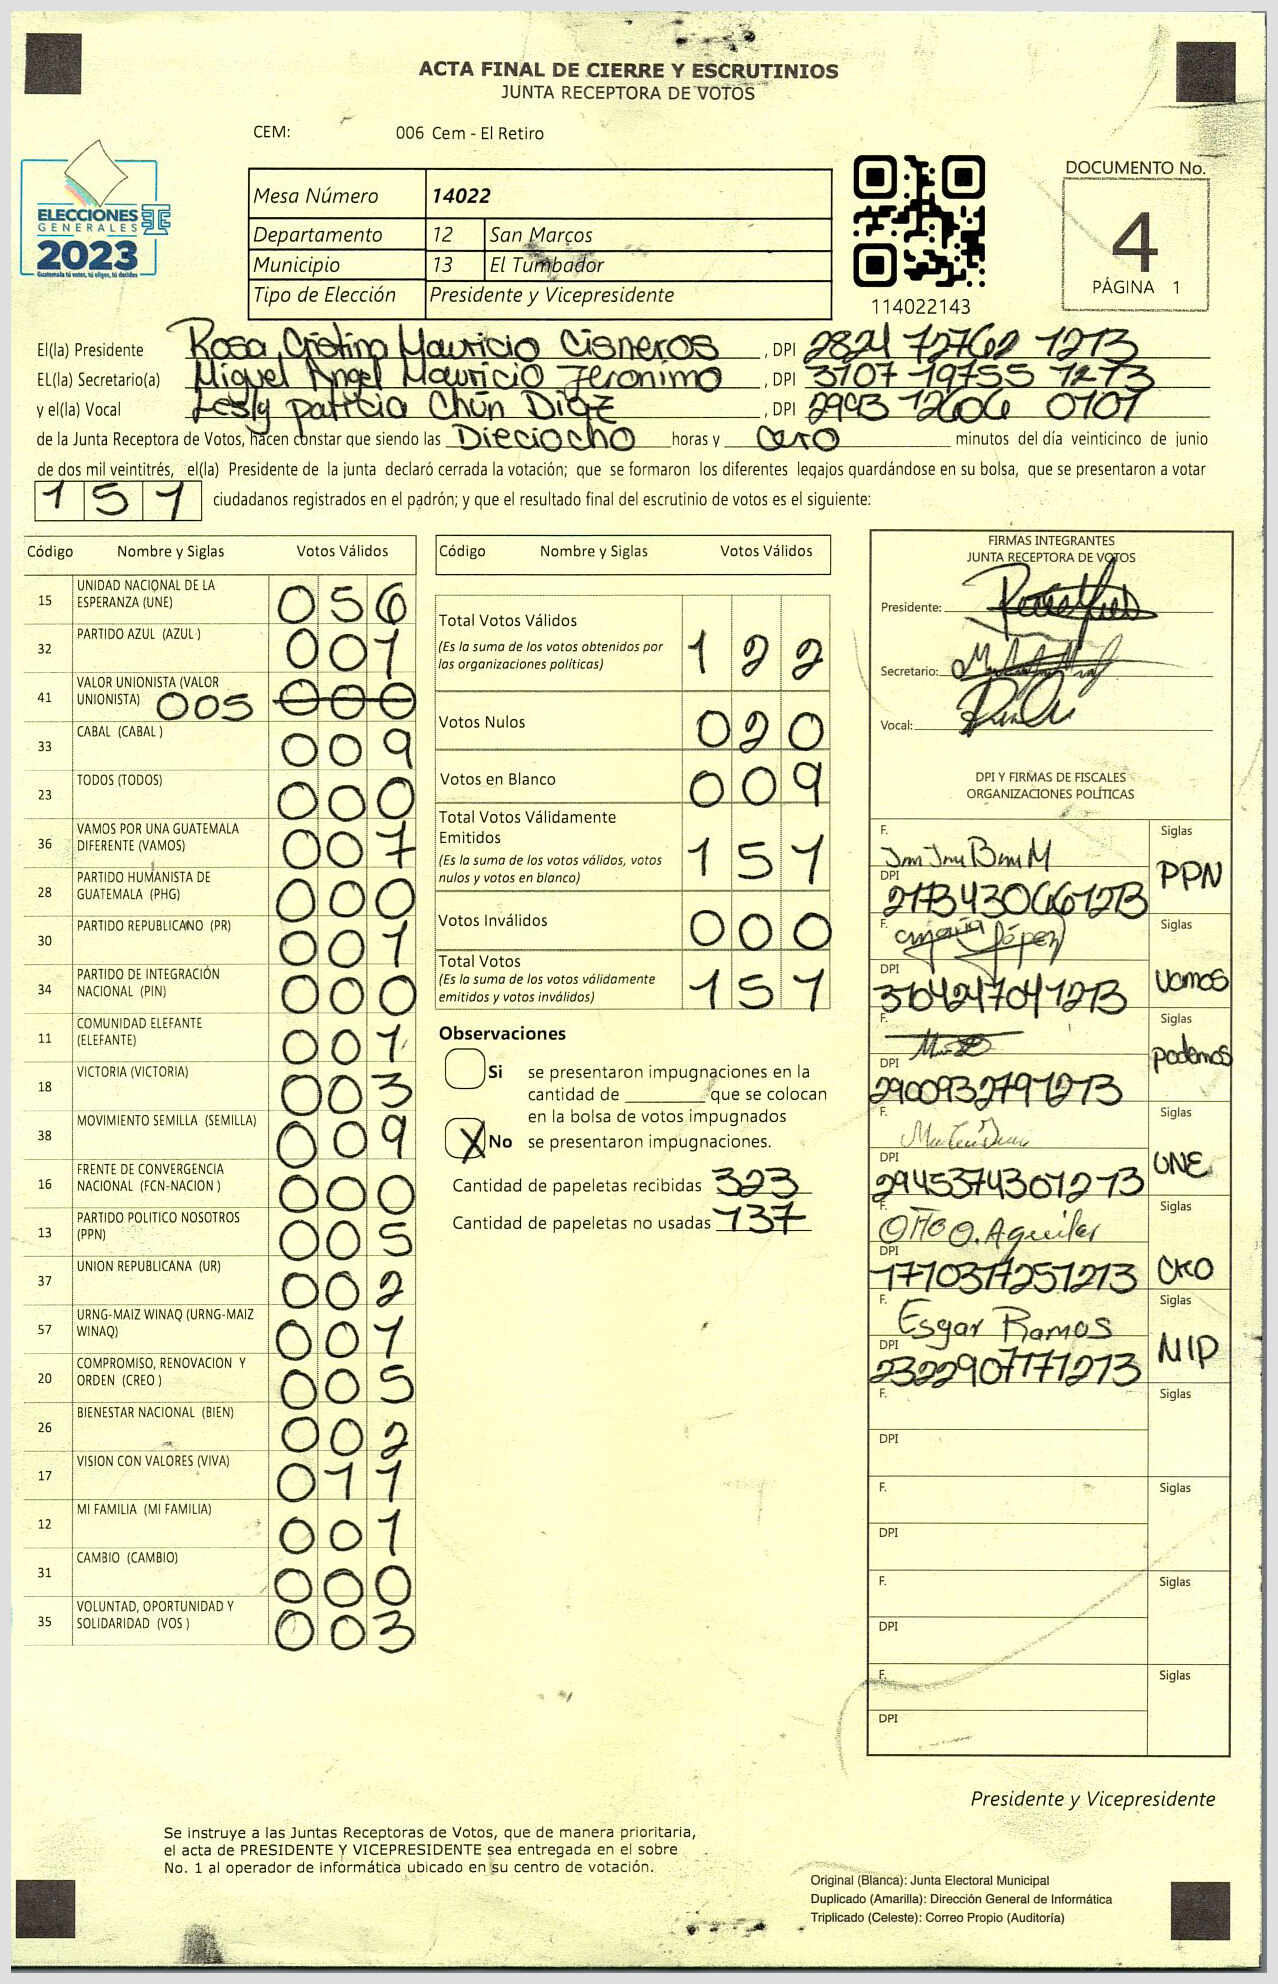 ACTA FINAL DE CIERRE Y ESCRUTINIOS
JUNTA RECEPTORA DE VOTOS
CEM: 006 Cem - El Retiro
ELECCIONES
GENERALES
2023
Guatemala tú votas, tú eliges, tú decides
Mesa Número 14022
Departamento 12 San Marcos
Municipio 13 El Tumbador
Tipo de Elección Presidente y Vicepresidente
114022143
DOCUMENTO No.
4
PÁGINA 1
El(la) Presidente Rosa Cristina Mauricio Cisneros , DPI 2824 72762 1213
EL(la) Secretario(a) Miguel Angel Mauricio Jeronimo , DPI 3107 19755 1213
y el(la) Vocal Lesly patricia Chún Diaz , DPI 2993 12606 0101
de la Junta Receptora de Votos, hacen constar que siendo las Dieciocho horas y cero minutos del día veinticinco de junio
de dos mil veintitrés, el(la) Presidente de la junta declaró cerrada la votación; que se formaron los diferentes legajos quardándose en su bolsa, que se presentaron a votar
151 ciudadanos registrados en el padrón; y que el resultado final del escrutinio de votos es el siguiente:
Código Nombre y Siglas Votos Válidos
15 UNIDAD NACIONAL DE LA
ESPERANZA (UNE) 056
32 PARTIDO AZUL (AZUL ) 001
41 VALOR UNIONISTA (VALOR
UNIONISTA) 005 000
33 CABAL (CABAL ) 009
23 TODOS (TODOS) 000
36 VAMOS POR UNA GUATEMALA
DIFERENTE (VAMOS) 007
28 PARTIDO HUMANISTA DE
GUATEMALA (PHG) 000
30 PARTIDO REPUBLICANO (PR) 001
34 PARTIDO DE INTEGRACIÓN
NACIONAL (PIN) 000
11 COMUNIDAD ELEFANTE
(ELEFANTE) 001
18 VICTORIA (VICTORIA) 003
38 MOVIMIENTO SEMILLA (SEMILLA) 009
16 FRENTE DE CONVERGENCIA
NACIONAL (FCN-NACION ) 000
13 PARTIDO POLITICO NOSOTROS
(PPN) 005
37 UNION REPUBLICANA (UR) 002
57 URNG-MAIZ WINAQ (URNG-MAIZ
WINAQ) 001
20 COMPROMISO, RENOVACION Y
ORDEN (CREO ) 005
26 BIENESTAR NACIONAL (BIEN) 002
17 VISION CON VALORES (VIVA) 011
12 MI FAMILIA (MI FAMILIA) 001
31 CAMBIO (CAMBIO) 000
35 VOLUNTAD, OPORTUNIDAD Y
SOLIDARIDAD (VOS ) 003
Código Nombre y Siglas Votos Válidos
Total Votos Válidos
(Es la suma de los votos obtenidos por
las organizaciones políticas) 122
Votos Nulos 020
Votos en Blanco 009
Total Votos Válidamente
Emitidos
(Es la suma de los votos válidos, votos
nulos y votos en blanco) 151
Votos Inválidos 000
Total Votos
(Es la suma de los votos válidamente
emitidos y votos inválidos) 151
Observaciones
Si se presentaron impugnaciones en la
cantidad de ________ que se colocan
en la bolsa de votos impugnados
X No se presentaron impugnaciones.
Cantidad de papeletas recibidas 323
Cantidad de papeletas no usadas 137
FIRMAS INTEGRANTES
JUNTA RECEPTORA DE VOTOS
Presidente:
Secretario:
Vocal:
DPI Y FIRMAS DE FISCALES
ORGANIZACIONES POLÍTICAS
F. Siglas
DPI PPN
2173430661213
F. López Siglas
DPI Vamos
3104247041213
F. Siglas
DPI podemos
2900932791213
F. Siglas
DPI UNE
2945374301213
F. Otto O. Aguilar Siglas
DPI CREO
1770317251213
F. Esgar Ramos Siglas
DPI MIP
2322907171213
F. Siglas
DPI
F. Siglas
DPI
F. Siglas
DPI
F. Siglas
DPI
Presidente y Vicepresidente
Se instruye a las Juntas Receptoras de Votos, que de manera prioritaria,
el acta de PRESIDENTE Y VICEPRESIDENTE sea entregada en el sobre
No. 1 al operador de informática ubicado en su centro de votación.
Original (Blanca): Junta Electoral Municipal
Duplicado (Amarilla): Dirección General de Informática
Triplicado (Celeste): Correo Propio (Auditoría)